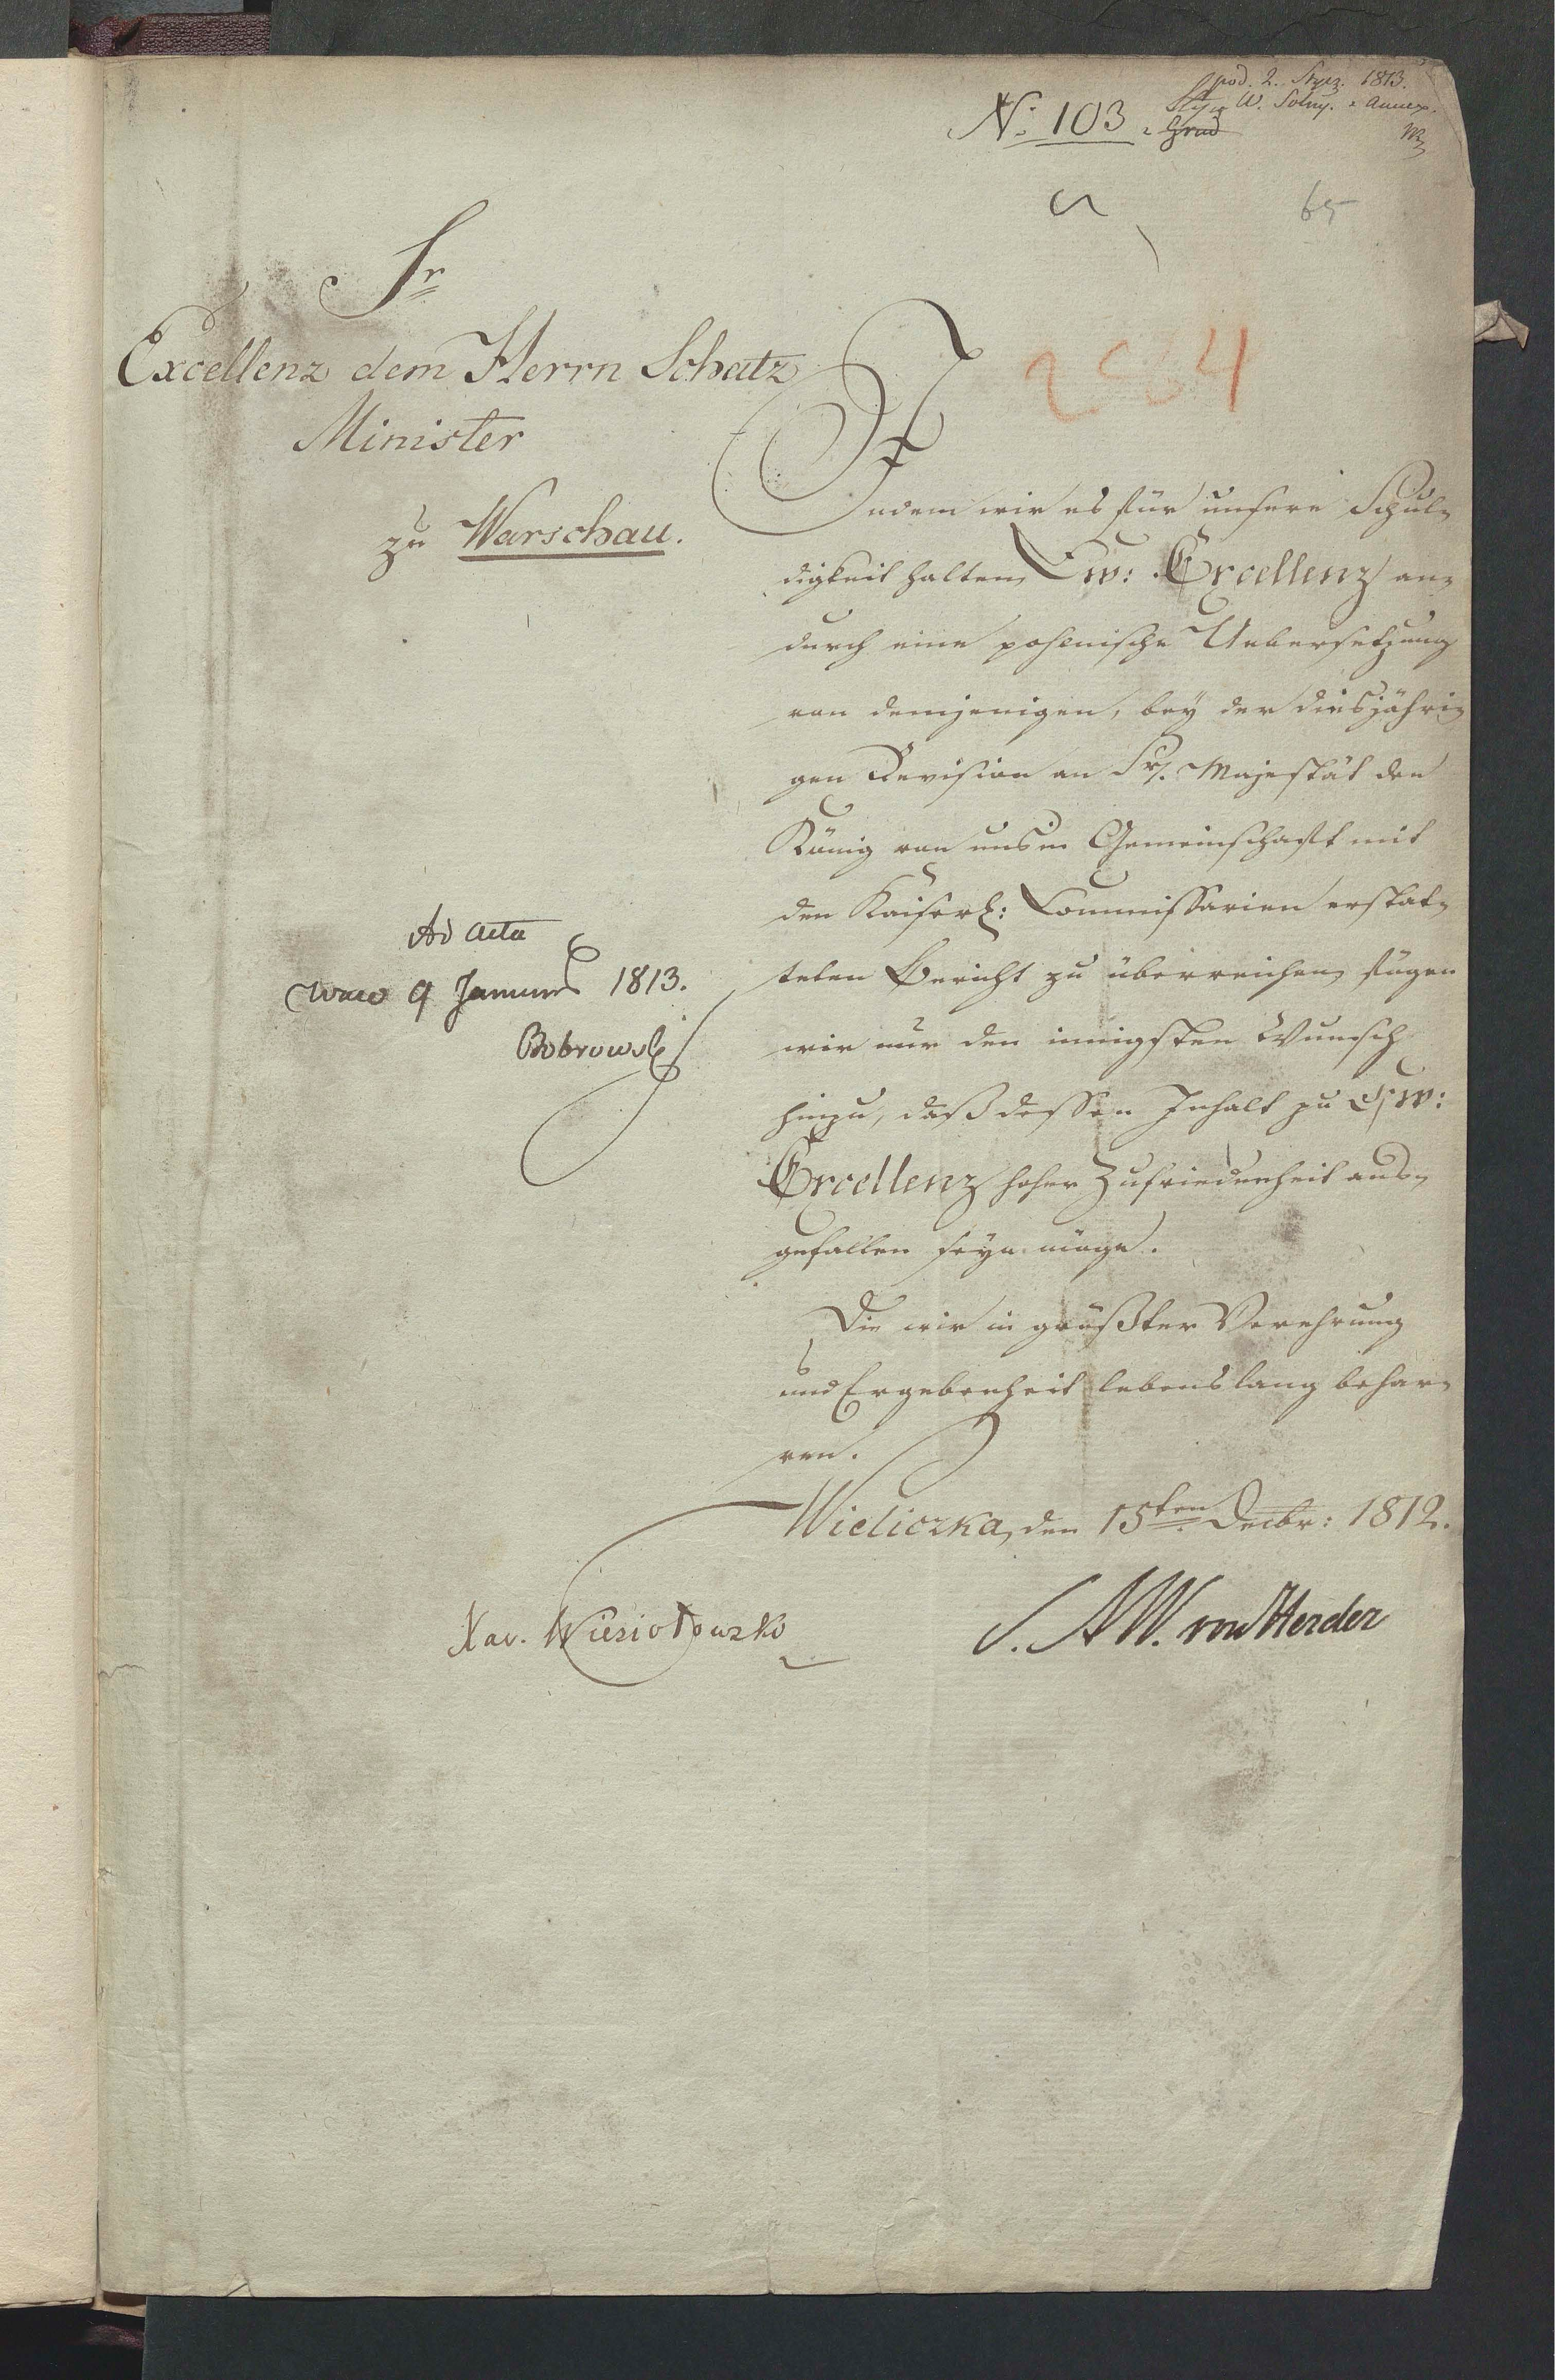 pod. 2. Stycz. 1813.
W. Solny. 2 Annex.
No: 103
65
Sr
Excellenz dem Herrn Schatz
Minister
zu Warschau.
Indem wir es für unsere Schul-
digkeit halten, Ew: Excellenz an-
durch eine pohlnische Uebersetzung
von demjenigen, bey der diesjähri-
gen Revision an Sr. Majestät den
König von uns in Gemeinschaft mit
den Kaiserl: Commissarien erstat-
teten Bericht zu überreichen, fügen
wir nur den innigsten Wunsch
hinzu, daß dessen Inhalt zu Ew:
Excellenz hoher Zufriedenheit aus-
gefallen seyn möge.
Die wir in größter Verehrung
und Ergebenheit lebenslang behar-
ren.
Wieliczka, den 15ten Decbr: 1812.
Xav. Wiesiołowski
S. A W. von Herder
Ad acta
9 1813.
Bobrowski